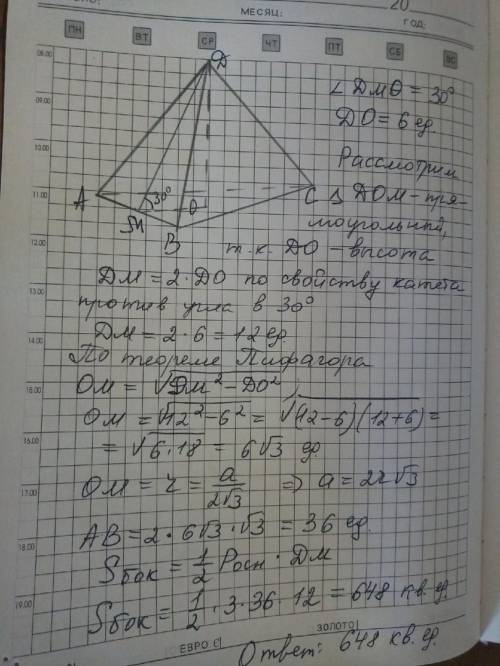 20
МЕСЯЦ:
ГОД:
ПН ВТ СР ЧТ ПТ СБ ВС
08.00
09.00
10.00
11.00
12.00
13.00
14.00
15.00
16.00
17.00
18.00
19.00
Д
A
30°
O
C
M
B
∠ ДМО = 30°
ДО = 6 ед.
Рассмотрим
△ ДОМ - пря-
моугольный,
т.к. ДО - высота
ДМ = 2·ДО по свойству катета
против угла в 30°
ДМ = 2·6 = 12 ед.
По теореме Пифагора
ОМ = √(ДМ² - ДО²),
ОМ = √(12² - 6²) = √((12-6)(12+6)) =
= √(6·18) = 6√3 ед.
ОМ = r = a/(2√3) ⇒ a = 2r√3
АВ = 2·6√3·√3 = 36 ед.
Sбок = 1/2 Росн · ДМ
Sбок = 1/2 · 3·36·12 = 648 кв. ед.
ЕВРО € ЗОЛОТО
Ответ: 648 кв. ед.